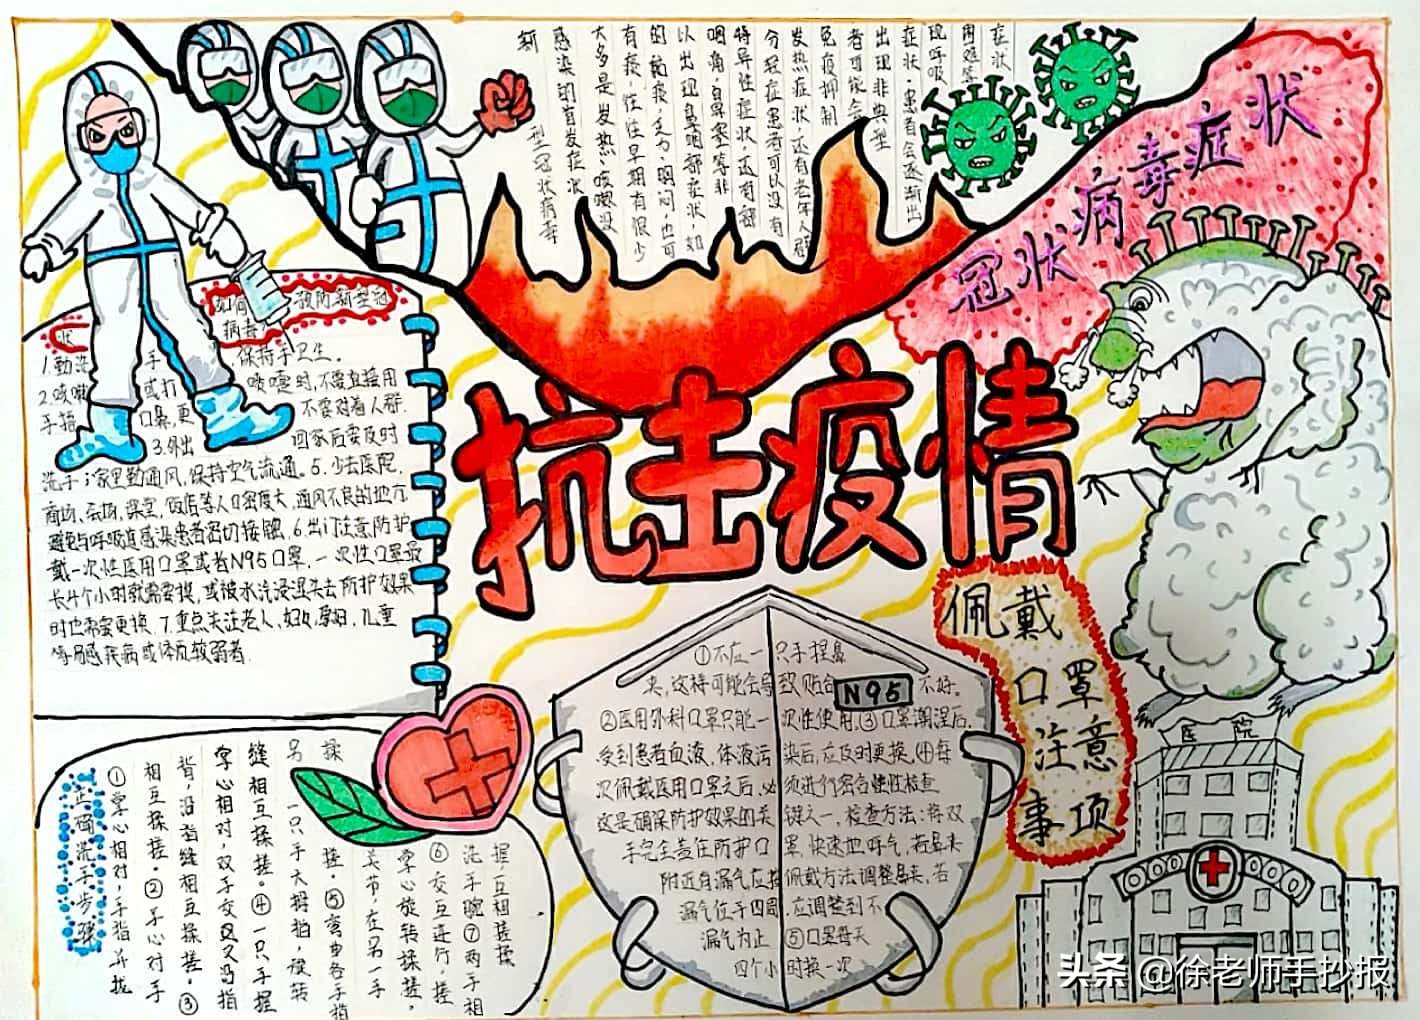 抗击疫情
冠状病毒症状
新
型冠状病毒
感染的首发症状
大多是发热、咳嗽没
有痰,往往早期有很少
的黏痰,乏力、胸闷,也可
以出现鼻咽部症状,如
咽痛,鼻塞等非
特异性症状,还有部
分轻症患者可以没有
发热症状,还有老年人群
免疫抑制
者可能会
出现非典型
症状,患者会逐渐出
现呼吸
困难等
症状
如何预防新型冠
状病毒
1.勤洗手 保持手卫生。
2.咳嗽或打喷嚏时,不要直接用
手捂口鼻,更不要对着人群.
3.外出回家后要及时
洗手;家里勤通风,保持空气流通。5.少去医院,
商场、云场,课堂,饭店等人口密度大,通风不良的地方
避免与呼吸道感染患者密切接触,6.出门注意防护
戴一次性医用口罩或者N95口罩,一次性口罩最
长4个小时就需要换,或被水汽浸湿失去防护效果
时也需要更换.7.重点关注老人,妇女,孕妇,儿童
等易感疾病或体质较弱者.
正确洗手步骤
①掌心相对,手指并拢
相互揉搓。②手心对手
背,沿指缝相互揉搓。③
掌心相对,双手交叉沿指
缝相互揉搓。④一只手握
另一只手大拇指,旋转
揉搓。⑤弯曲各手指
关节,在另一手
掌心旋转揉搓,
⑥交互进行,搓
洗手腕⑦两手相
握互相搓揉
佩戴
口罩
注意
事项
N95
①不应一只手捏鼻
夹,这样可能会导致贴合不好。
②医用外科口罩只能一次性使用,③口罩潮湿后,
受到患者血液、体液污染后,应及时更换,④每
次佩戴医用口罩之后,必须进行密合性性检查
这是确保防护效果的关键之一,检查方法:将双
手完全盖住防护口罩,快速地呼气,若鼻夹
附近有漏气应按佩戴方法调整鼻夹,若
漏气位于四周,应调整到不
漏气为止 ⑤口罩每天
四个小时换一次
医院
头条@徐老师手抄报